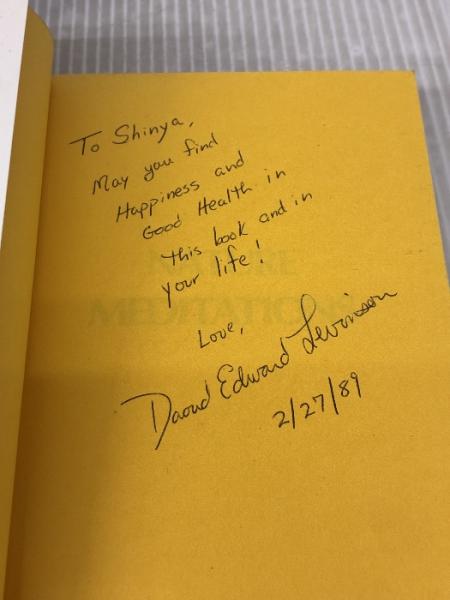 To Shinya,
May you find
Happiness and
Good Health in
this book and in
your life!
NATURE
MEDITATIONS
Love,
Daoud Edward Levinson
2/27/89